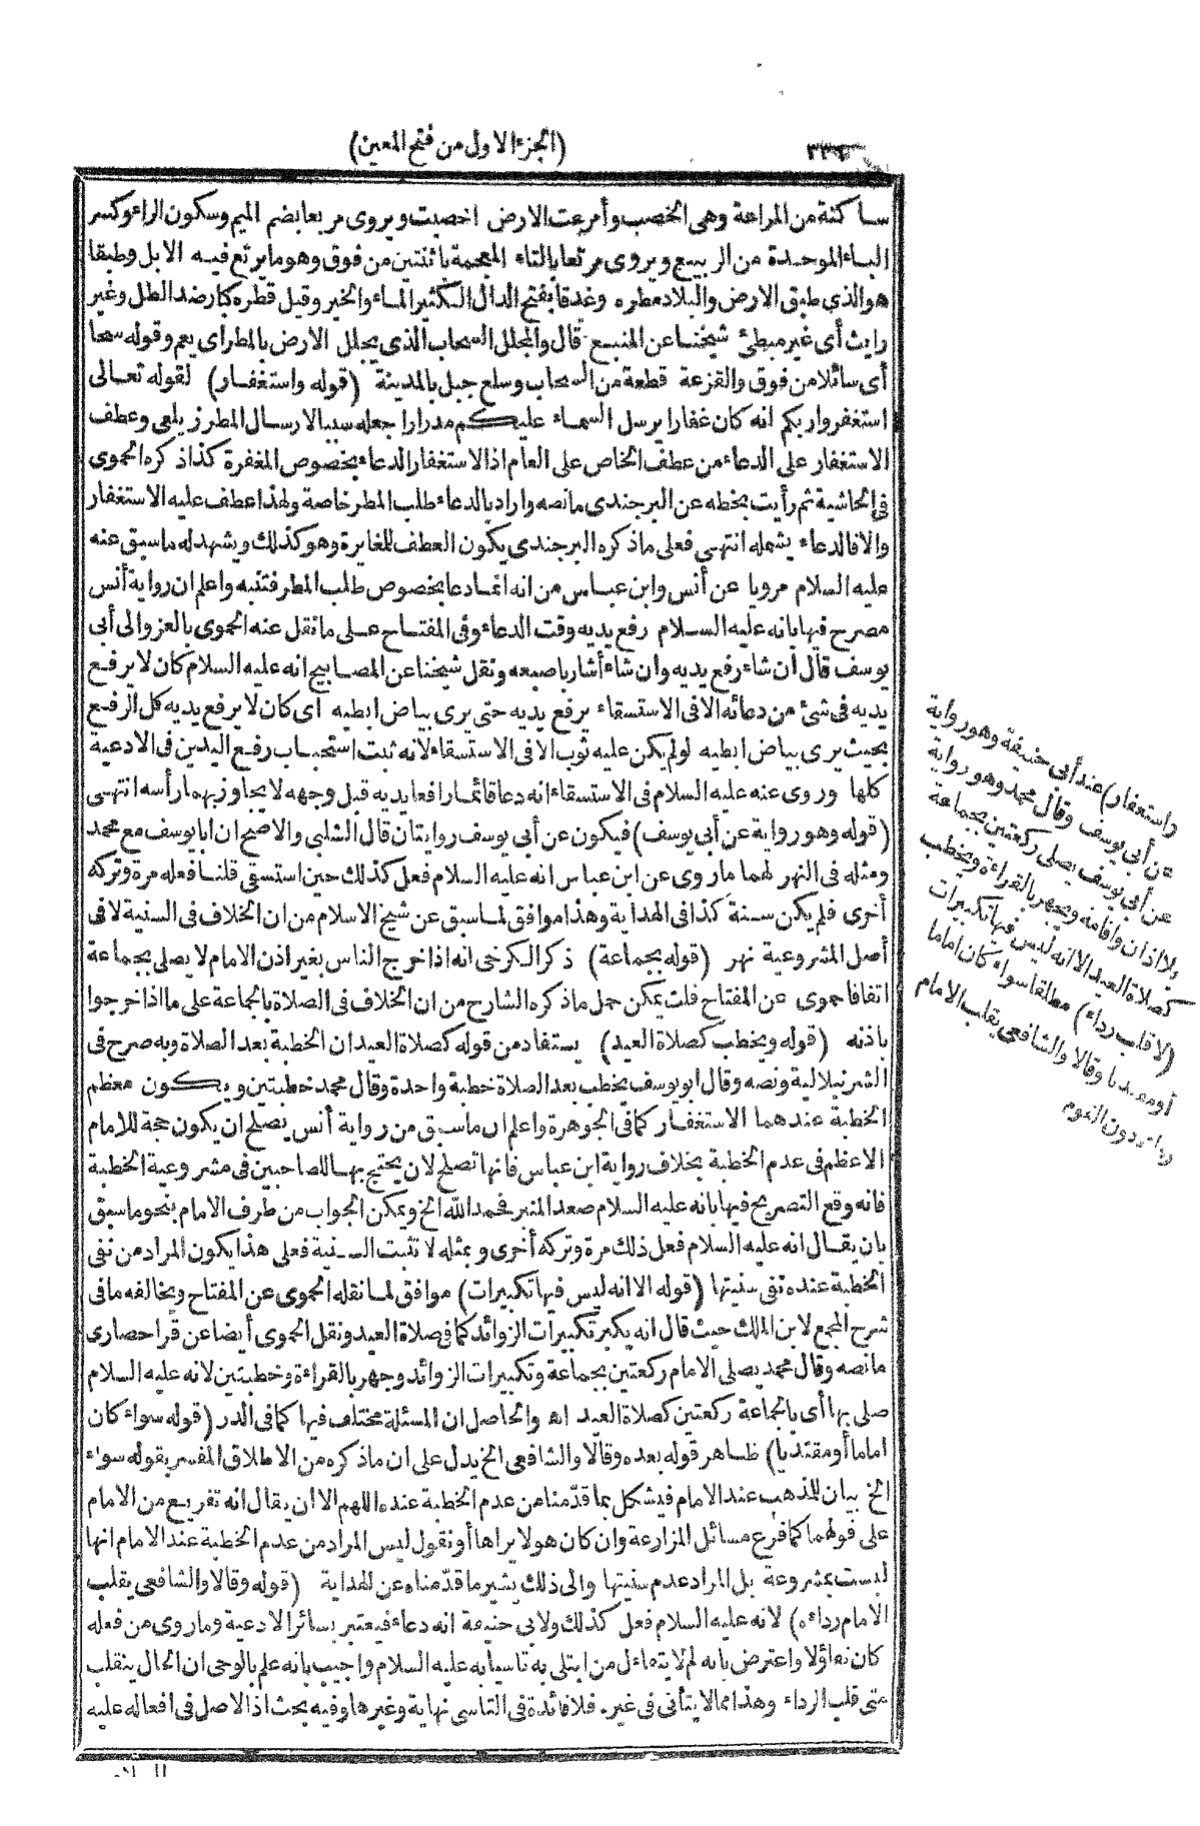 (الجزء الاول من فتح المعين)
ساكنة من المراعة وهى الخصب وأمرعت الارض اخصبت ويروى مربعا بضم الميم وسكون الراء وكسر
الباء الموحدة من الربيع ويروى مرتعا بالتاء المعجمة باثنتين من فوق وهو ما يرتع فيه الابل وطبقا
هو الذى طبق الارض والبلاد مطره وغدقا بفتح الدال الكثير الماء والخير وقيل قطره كبار ضد الطل وغير
رايث أى غير مبطئ شيخنا عن المنبع قال والمجلل السحاب الذى يجلل الارض بالمطر اى يعم وقوله سحا
أى سائلا من فوق والقزعة قطعة من السحاب وسلع جبل بالمدينة (قوله واستغفار) لقوله تعالى
استغفروا ربكم انه كان غفارا يرسل السماء عليكم مدرارا جعله سببا لارسال المطر زيلعى وعطف
الاستغفار على الدعاء من عطف الخاص على العام اذ الاستغفار الدعاء بخصوص المغفرة كذا ذكره الحموى
فى الحاشية ثم رأيت بخطه عن البرجندى ما نصه واراد بالدعاء طلب المطر خاصة ولهذا عطف عليه الاستغفار
والا فالدعاء يشمله انتهى فعلى ما ذكره البرجندى يكون العطف للمغايرة وهو كذلك ويشهد له ما سبق عنه
عليه السلام مرويا عن أنس وابن عباس من انه انما دعا بخصوص طلب المطر فتنبه واعلم ان رواية أنس
مصرح فيها بانه عليه السلام رفع يديه وقت الدعاء وفى المفتاح على ما نقل عنه الحموى بالعز والى أبى
يوسف قال ان شاء رفع يديه وان شاء أشار باصبعه ونقل شيخنا عن المصابيح انه عليه السلام كان لا يرفع
يديه فى شئ من دعائه الا فى الاستسقاء يرفع يديه حتى يرى بياض ابطيه اى كان لا يرفع يديه كل الرفع
بحيث يرى بياض ابطيه لو لم يكن عليه ثوب الا فى الاستسقاء لانه ثبت استحباب رفع اليدين فى الادعية
كلها وروى عنه عليه السلام فى الاستسقاء انه دعا قائما رافعا يديه قبل وجهه لا يجاوز بهما رأسه انتهى
(قوله وهو رواية عن أبى يوسف) فيكون عن أبى يوسف روايتان قال الشلبى والاصح ان ابا يوسف مع محمد
ومثله فى النهر لهما ما روى عن ابن عباس انه عليه السلام فعل كذلك حين استسقى قلنا فعله مرة وتركه
أخرى فلم يكن سنة كذا فى الهداية وهذا موافق لما سبق عن شيخ الاسلام من ان الخلاف فى السنية لا فى
أصل المشروعية نهر (قوله بجماعة) ذكر الكرخى انه اذا خرج الناس بغير اذن الامام لا يصلى بجماعة
اتفاقا حموى عن المفتاح قلت يمكن حمل ما ذكره الشارح من ان الخلاف فى الصلاة بالجماعة على ما اذا خرجوا
باذنه (قوله ويخطب كصلاة العيد) يستفاد من قوله كصلاة العيد ان الخطبة بعد الصلاة وبه صرح فى
الشرنبلالية ونصه وقال ابو يوسف يخطب بعد الصلاة خطبة واحدة وقال محمد خطبتين ويكون معظم
الخطبة عندهما الاستغفار كما فى الجوهرة واعلم ان ما سبق من رواية أنس يصلح ان يكون حجة للامام
الاعظم فى عدم الخطبة بخلاف رواية ابن عباس فانها تصلح لان يحتج بها للصاحبين فى مشروعية الخطبة
فانه وقع التصريح فيها بانه عليه السلام صعد المنبر فحمد الله الخ ويمكن الجواب من طرف الامام بنحو ما سبق
بان يقال انه عليه السلام فعل ذلك مرة وتركه أخرى وبمثله لا تثبت السنية فعلى هذا يكون المراد من نفى
الخطبة عنده نفى سنيتها (قوله الا انه ليس فيها تكبيرات) موافق لما نقله الحموى عن المفتاح ويخالفه ما فى
شرح المجمع لابن الملك حيث قال انه يكبر تكبيرات الزوائد كما فى صلاة العيد ونقل الحموى أيضا عن قراحصارى
ما نصه وقال محمد يصلى الامام ركعتين بجماعة وتكبيرات الزوائد وجهر بالقراءة وخطبتين لانه عليه السلام
صلى بها أى بالجماعة ركعتين كصلاة العيد اه والحاصل ان المسئلة مختلف فيها كما فى الدر (قوله سواء كان
اماما أو مقتديا) ظاهر قوله بعده وقالا والشافعى الخ يدل على ان ما ذكره من الاطلاق المفسر بقوله سواء
الخ بيان للمذهب عند الامام فيشكل بما قدمنا من عدم الخطبة عنده اللهم الا ان يقال انه تفريع من الامام
على قولهما كما فرع مسائل المزارعة وان كان هو لا يراها أو نقول ليس المراد من عدم الخطبة عند الامام انها
ليست بمشروعة بل المراد عدم سنيتها والى ذلك يشير ما قدمناه عن الهداية (قوله وقالا والشافعى يقلب
الامام رداءه) لانه عليه السلام فعل كذلك ولابى حنيفة انه دعاء فيعتبر بسائر الادعية وما روى من فعله
كان تفاؤلا واعترض بانه لم لا يتفاءل من ابتلى به تاسيا به عليه السلام واجيب بانه علم بالوحى ان الحال ينقلب
متى قلب الرداء وهذا مما لا يتأتى فى غيره فلا فائدة فى التاسى نهاية وغيرها وفيه بحث اذ الاصل فى افعاله عليه
السلام
واستغفار) عند أبى حنيفة وهو رواية
عن أبى يوسف وقال محمد وهو رواية
عن أبى يوسف يصلى ركعتين بجماعة
بلا اذان واقامة ويجهر بالقراءة ويخطب
كصلاة العيد الا انه ليس فيها تكبيرات
(لا قلب رداء) مطلقا سواء كان اماما
أو مقتديا وقالا والشافعى يقلب الامام
رداءه دون القوم